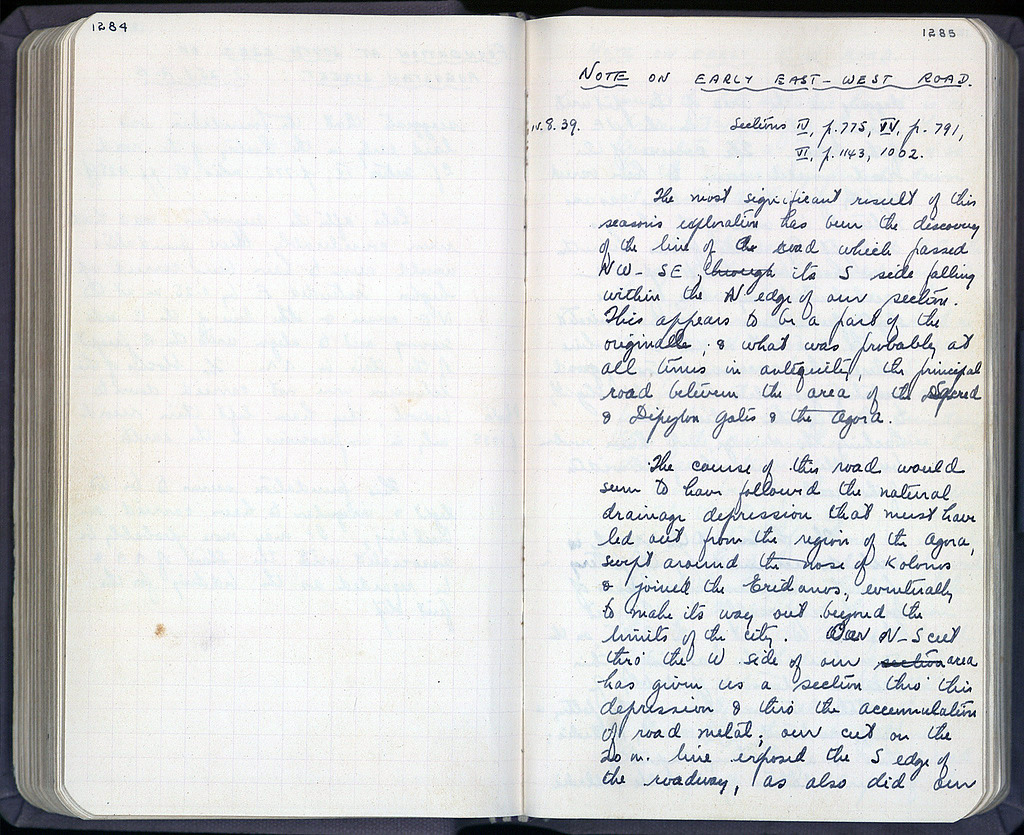 1284
1285
NOTE ON EARLY EAST-WEST ROAD.
8.39.
Sections IV, p. 775, IV, p. 791,
VI, p. 1143, 1002.
The most significant result of this
season's exploration has been the discovery
of the line of the road which passed
NW-SE, through its S side falling
within the N edge of our section.
This appears to be a part of the
original, & what was probably at
all times in antiquity, the principal
road between the area of the Sacred
& Dipylon Gates & the Agora.
The course of this road would
seem to have followed the natural
drainage depression that must have
led out from the region of the Agora,
swept around the nose of Kolonos
& joined the Eridanos, eventually
to make its way out beyond the
limits of the city. Our N-S cut
thro' the W side of our section area
has given us a section thro' this
depression & thro' the accumulation
of road metal; our cut on the
20 m. line exposed the S edge of
the roadway, as also did our